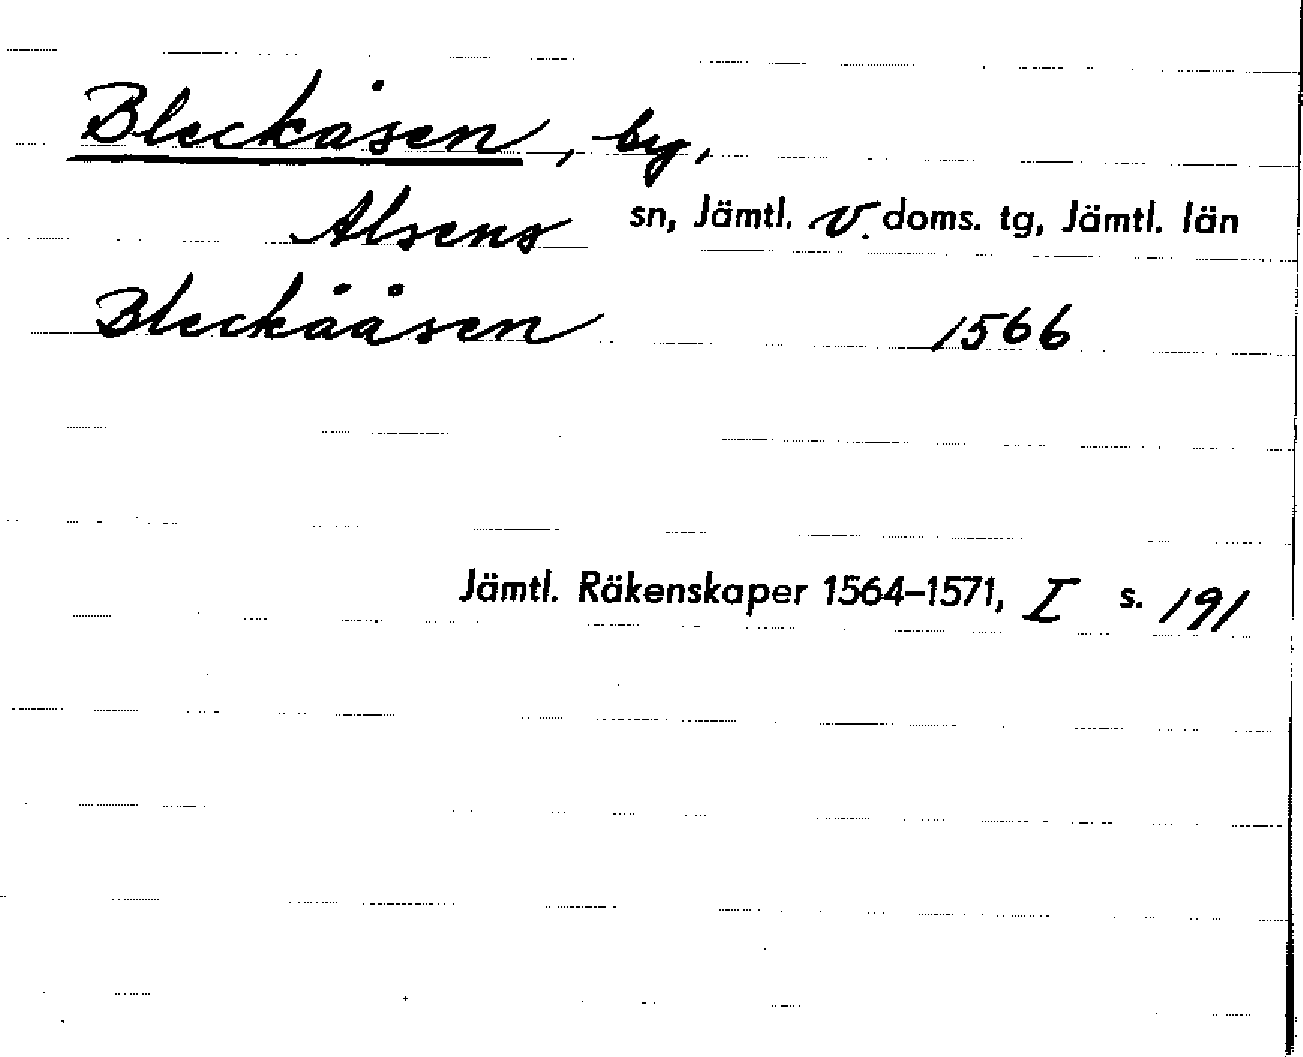 Bleckåsen, by,
Alsens sn, Jämtl. v. doms. tg, Jämtl. län
Bleckååsen 1566
Jämtl. Räkenskaper 1564–1571, I s. 191